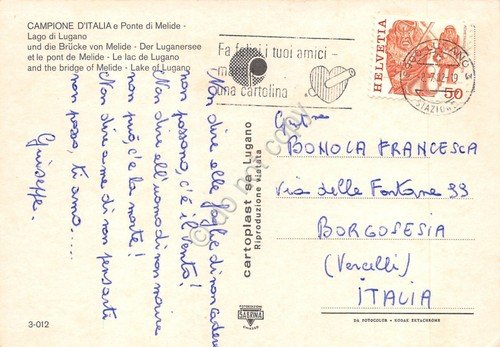 CAMPIONE D'ITALIA e Ponte di Melide -
Lago di Lugano
und die Brücke von Melide - Der Luganersee
et le pont de Melide - Le lac de Lugano
and the bridge of Melide - Lake of Lugano
Fa felici i tuoi amici -
una cartolina
HELVETIA
50
Non dire alle foglie di non cadere
non possono, c'è il vento!
Non dire all'uomo di non morire
non può, c'è la morte!
Non dire a me di non pensarti
non posso, ti amo....
Giuseppe.
cartoplast sa Lugano
Riproduzione vietata
BONOLA FRANCESCA
via delle Fontane 99
BORGOSESIA
(Vercelli)
ITALIA
SABRINA
DA FOTOCOLOR - KODAK EKTACHROME
3-012